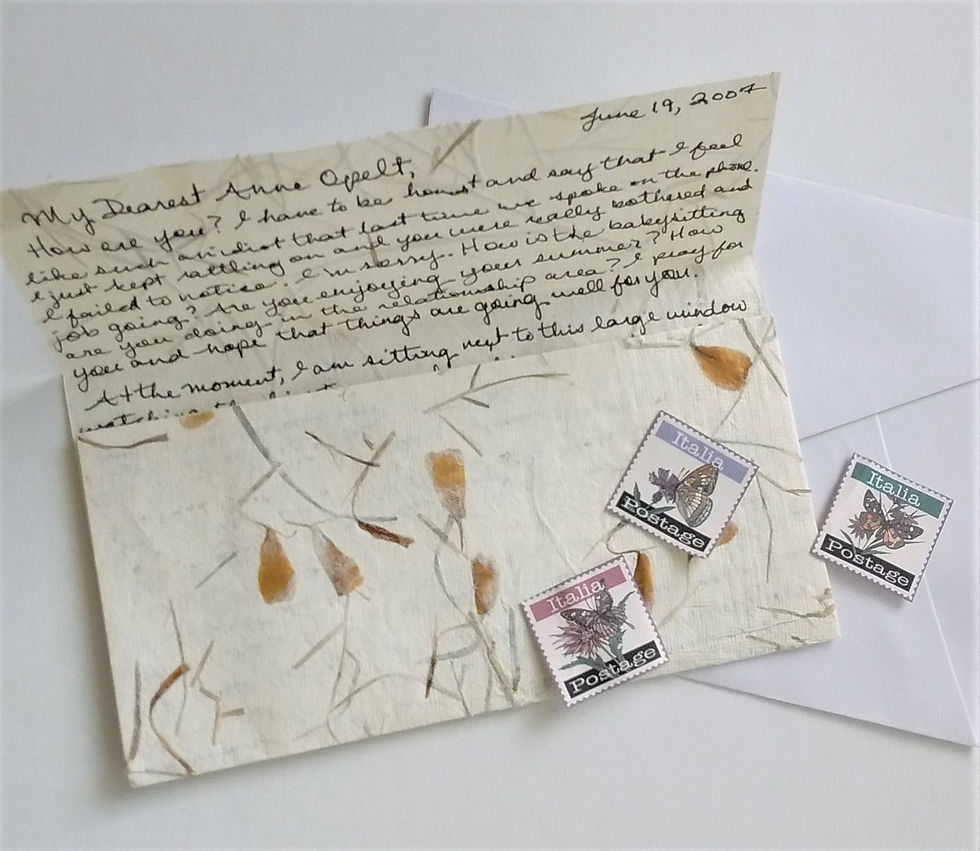 June 19, 2007
My Dearest Anne Opelt,
How are you? I have to be honest and say that I feel
like such an idiot that last time we spoke on the phone.
I just kept rattling on and you were really bothered and
I failed to notice. I'm sorry. How is the babysitting
job going? Are you enjoying your summer? How
are you doing in the relationship area? I pray for
you and hope that things are going well for you.
At the moment, I am sitting next to this large window
watching the
Italia
Postage
Italia
Postage
Italia
Postage